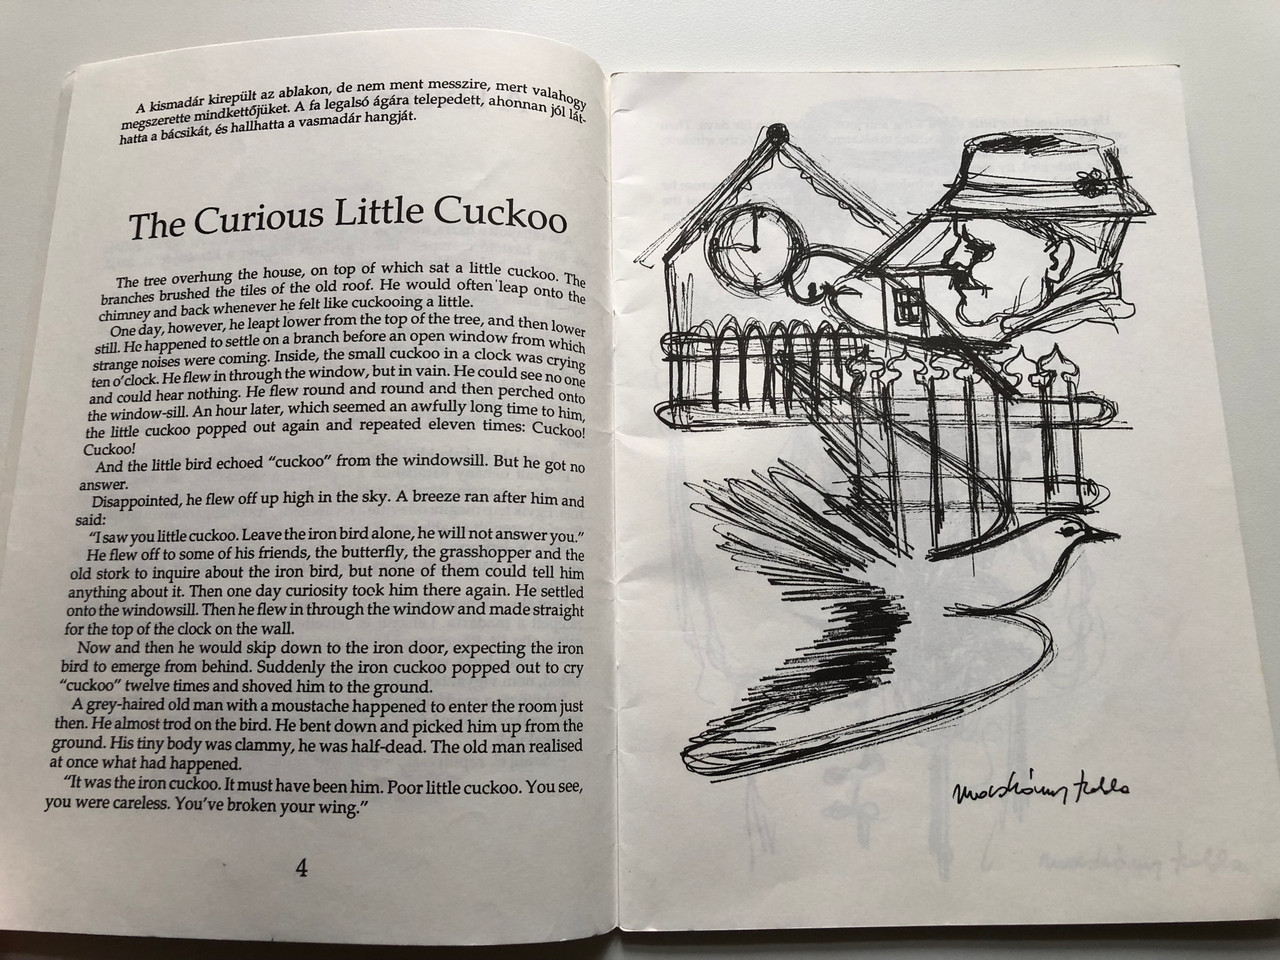 A kismadár kirepült az ablakon, de nem ment messzire, mert valahogy
megszerette mindkettőjüket. A fa legalsó ágára telepedett, ahonnan jól lát-
hatta a bácsikát, és hallhatta a vasmadár hangját.
The Curious Little Cuckoo
The tree overhung the house, on top of which sat a little cuckoo. The
branches brushed the tiles of the old roof. He would often leap onto the
chimney and back whenever he felt like cuckooing a little.
One day, however, he leapt lower from the top of the tree, and then lower
still. He happened to settle on a branch before an open window from which
strange noises were coming. Inside, the small cuckoo in a clock was crying
ten o'clock. He flew in through the window, but in vain. He could see no one
and could hear nothing. He flew round and round and then perched onto
the window-sill. An hour later, which seemed an awfully long time to him,
the little cuckoo popped out again and repeated eleven times: Cuckoo!
Cuckoo!
And the little bird echoed "cuckoo" from the windowsill. But he got no
answer.
Disappointed, he flew off up high in the sky. A breeze ran after him and
said:
"I saw you little cuckoo. Leave the iron bird alone, he will not answer you."
He flew off to some of his friends, the butterfly, the grasshopper and the
old stork to inquire about the iron bird, but none of them could tell him
anything about it. Then one day curiosity took him there again. He settled
onto the windowsill. Then he flew in through the window and made straight
for the top of the clock on the wall.
Now and then he would skip down to the iron door, expecting the iron
bird to emerge from behind. Suddenly the iron cuckoo popped out to cry
"cuckoo" twelve times and shoved him to the ground.
A grey-haired old man with a moustache happened to enter the room just
then. He almost trod on the bird. He bent down and picked him up from the
ground. His tiny body was clammy, he was half-dead. The old man realised
at once what had happened.
"It was the iron cuckoo. It must have been him. Poor little cuckoo. You see,
you were careless. You've broken your wing."
4